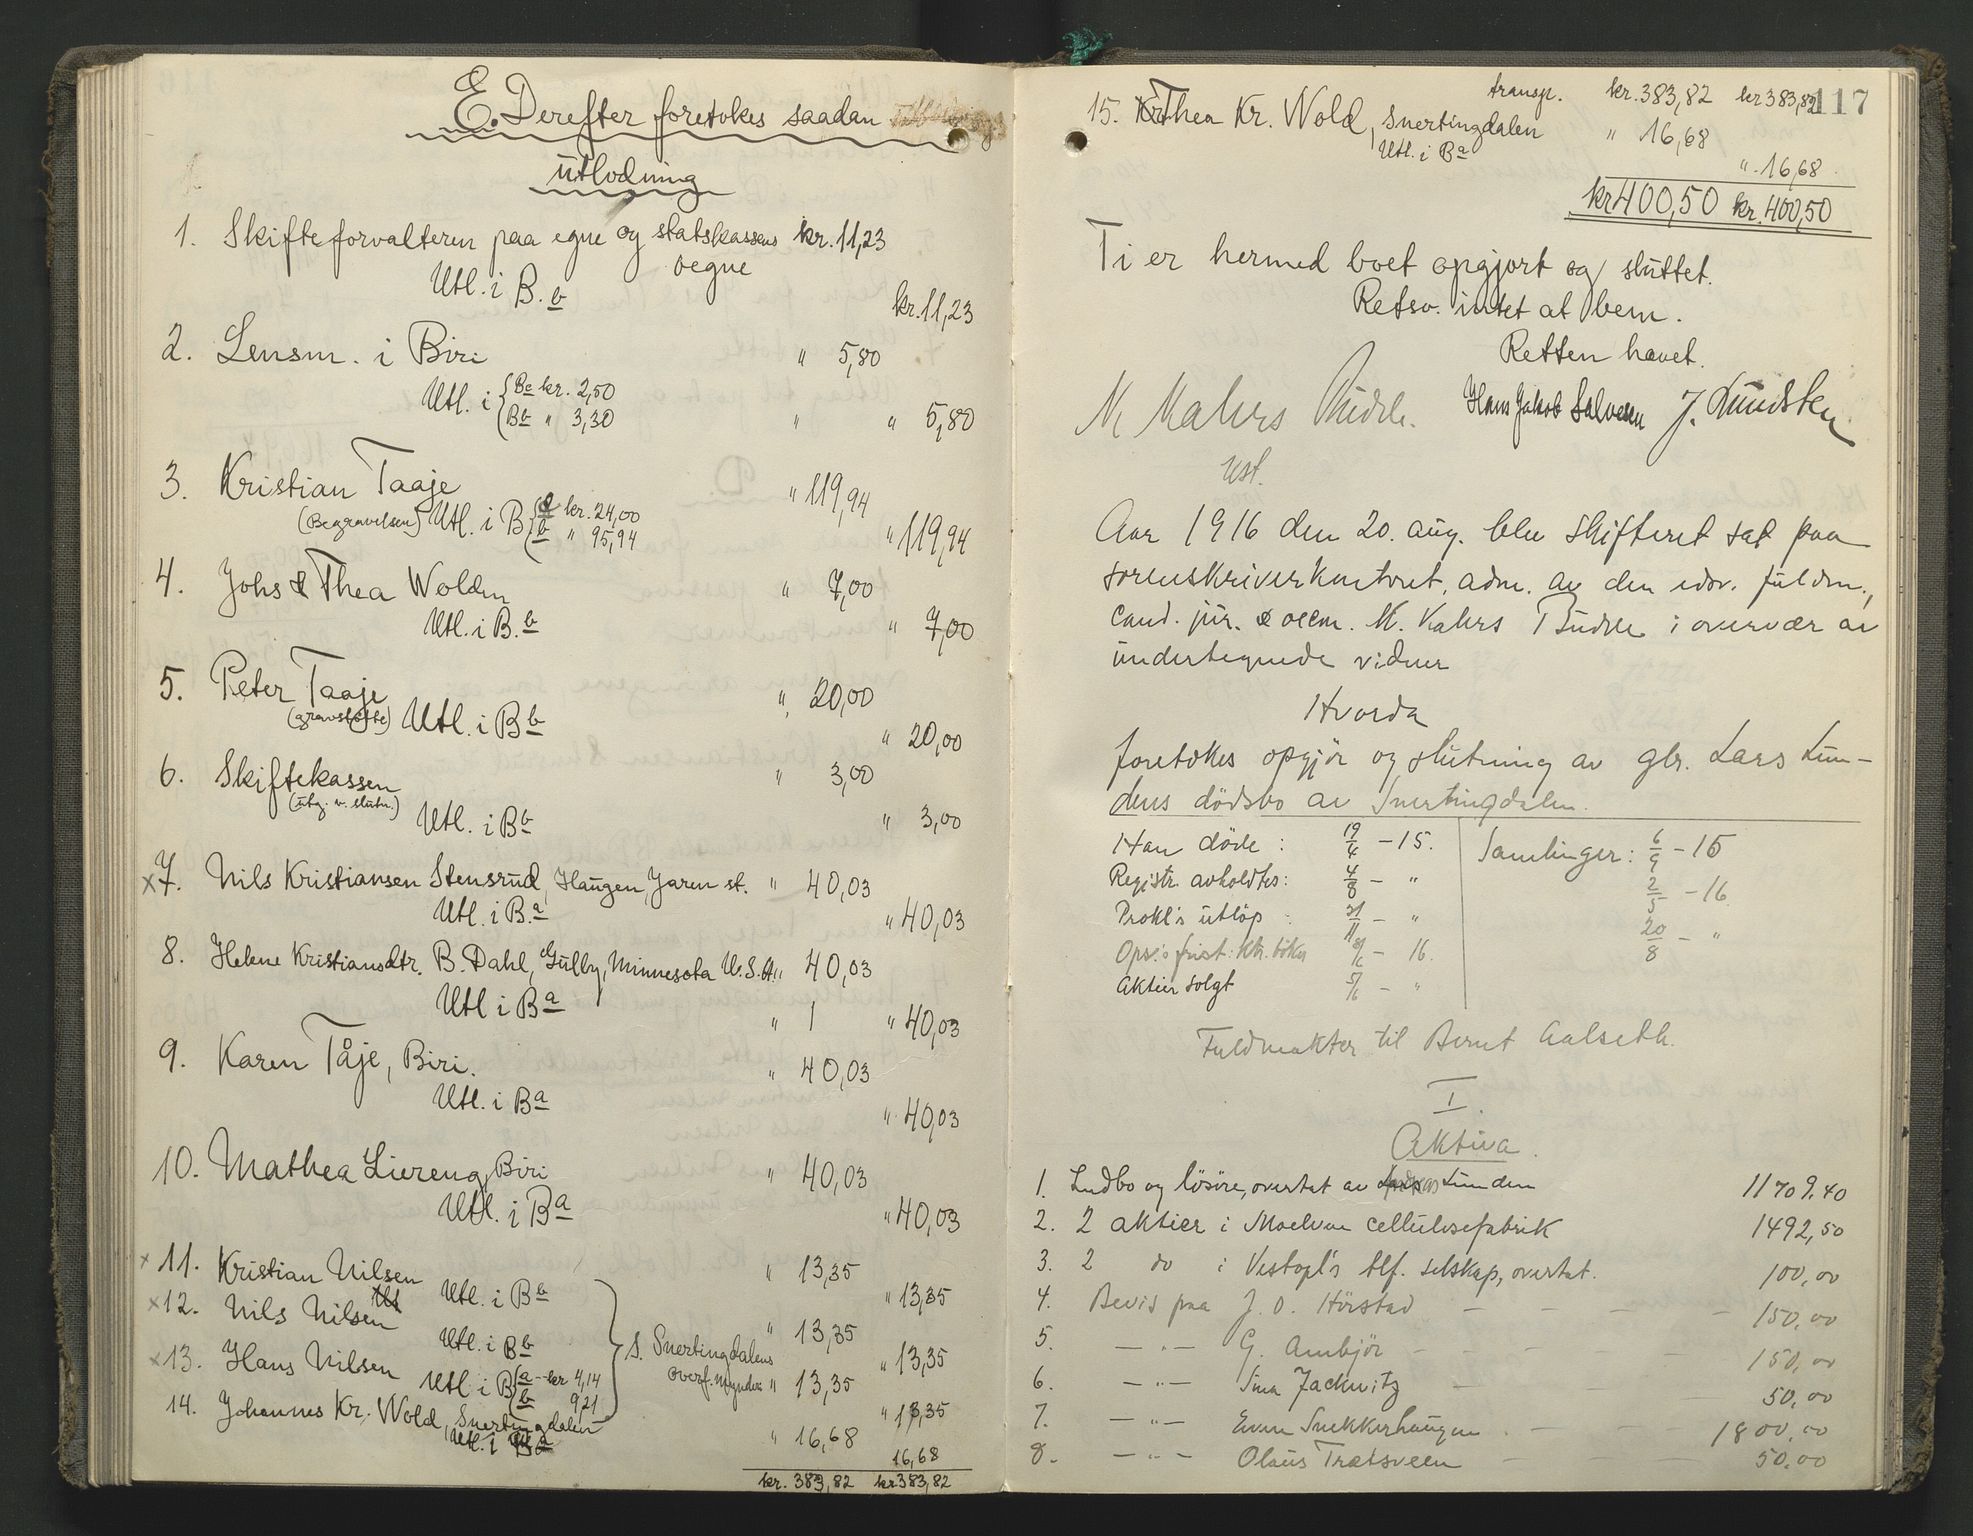 E. Derefter foretokes saadan
utlodning
1. Skifteforvalteren paa egne og statskassens kr. 11,23
vegne
Utl. i B. b
kr. 11,23
2. Lensm. i Biri " 5,80
Utl. i { Ba kr. 2,50
Bb " 3,30 " " 5,80
3. Kristian Taaje " 119,94
(Begravelsen) Utl. i B { a kr. 24,00
b " 95,94 " 119,94
4. Johs & Thea Wolden " 7,00
Utl. i B. b " 7,00
5. Peter Taaje " 20,00
(gravstøtte) Utl. i B b " 20,00
6. Skiftekassen " 3,00
(utg. v. slutn.)
Utl. i B b " 3,00
x7. Nils Kristiansen Stensrud, Haugen, Jaren st. " 40,03
Utl. i B. a " 40,03
8. Helene Kristiansdtr. B. Dahl, Gully, Minnesota U.S.A. " 40,03
Utl i B a " 40,03
9. Karen Tåje, Biri. " 40,03
Utl. i B a " 40,03
10. Mathea Liereng, Biri " 40,03
Utl. i B a " 40,03
x 11. Kristian Nilsen " 13,35
Utl. i B b " 13,35
x12. Nils Nilsen " 13,35
Utl. i B b " 13,35
S. Snertingdalens
overf.mynderi
x13. Hans Nilsen " 13,35
Utl i B { a - kr 4,14
b 9,21 " 13,35
14. Johannes Kr. Wold, Snertingdalen " 16,68
Utl. i Ba 16,68
kr. 383,82 kr 383,82
117
transp. kr. 383,82 kr 383,82
15. Thea Kr. Wold, Snertingdalen " 16,68
Utl. i B a " 16,68
kr 400,50 kr. 400,50
Ti er hermed boet opgjort og sluttet.
Retsv. intet at bem.
Retten hævet.
M Kahrs Budde. Hans Jakob Salvesen J. Lundsten
kst.
Aar 1916 den 20. aug. blev skifteret sat paa
sorenskriverkontoret, adm. av den edsv. fuldm.,
cand. jur. & oecon. M. Kahrs Budde i overvær av
undertegnede vidner
Hvorda
foretokes opgjör og slutning av gbr. Lars Lun-
dens dödsbo av Snertingdalen.
Han döde : 19/4 - 15. Samlinger: 6/9 - 15
Registr. avholdtes: 4/8 - " 2/5 - 16
Prokl's utlöp : 21/11 - " 20/8 - "
Ops's frist: - 16.
Aktier solgt 5/6 - "
Fuldmakter til Bernt Aalseth.
I
Aktiva.
1. Indbo og lösöre, overtat av Lunden 11709.40
2. 2 aktier i Moelven cellulosefabrik 1492,50
3. 2 do i Vestopl's tlf. selskap, overtat. 100,00
4. Bevis paa J. O. Hörstad - - - - 150,00
5. - " - G. Ambjör - - - 150,00
6. - " - Sina Jackwitz - - - 50,00
7. - " - Even Snekkerhaugen - - - 1800,00
8. - " - Olaus Trætsveen - - - 50.00